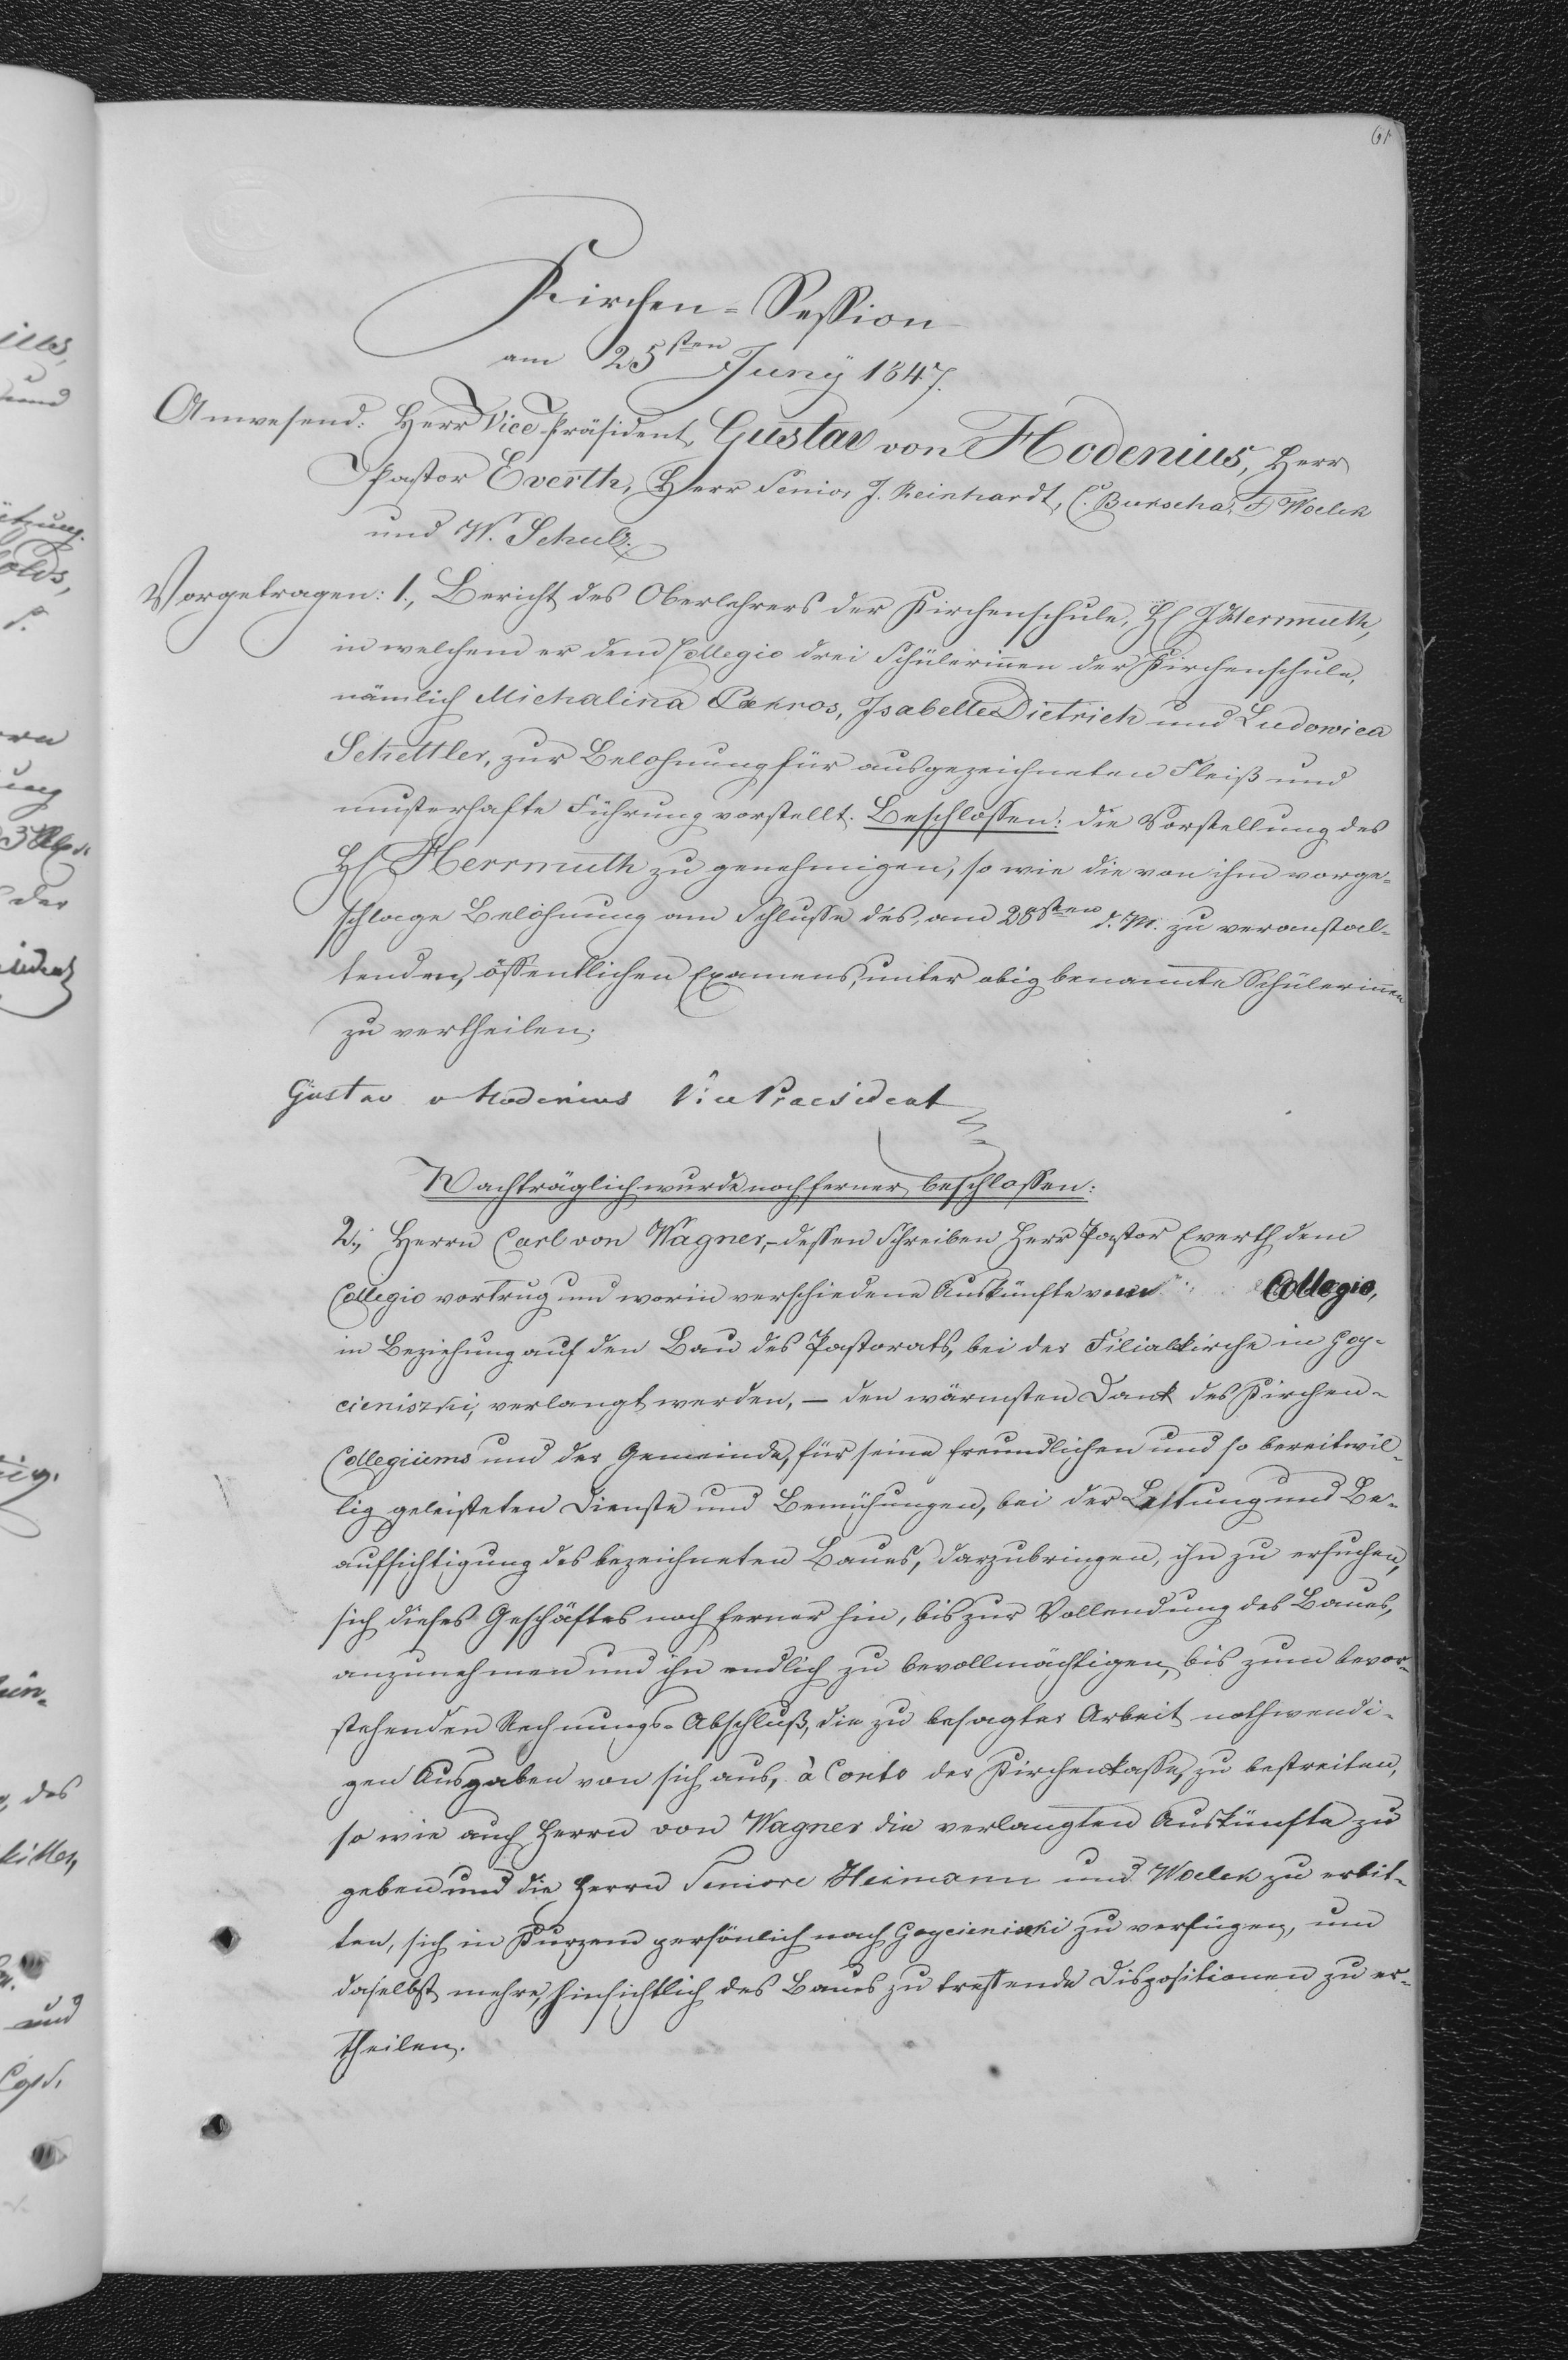 61
Kirchen-Session
am 25sten Juny 1847.
Anwesend: Herr Vice-Präsident Gustav von Hodenius, Herr
Pastor Everth, Herr Senior J. Reinhardt, C. Burscha, F Woelck
und W. Schulz.
Vorgetragen: 1., Bericht des Oberlehrers der Kirchenschule, H J Herrmuth,
in welchem er dem Collegio drei Schülerinnen der Kirchenschule,
nämlich Michalina Pakros, Isabelle Dietrich und Ludowica
Schettler, zur Belohnung für ausgezeichneten Fleiß und
musterhafte Führung vorstellt. Beschlossen: die Vorstellung des
H Herrmuth zu genehmigen, so wie die von ihm vorge-
schlage Belohnung am Schlusse des, am sten d. M. zu veranstal-
tenden, öffentlichen Examens, unter obig benannte Schülerinnen
zu vertheilen.
Gustav v Hodenius Vice Praesident
Nachträglich wurde noch ferner beschlossen:
2., Herrn Carl von Wagner, – dessen Schreiben Herr Pastor Everth dem
Collegio vortrug und worin verschiedene Auskünfte vom Collegio,
in Beziehung auf den Bau des Pastorats, bei der Filialkirche in Goy-
cieniszki, verlangt werden, – den wärmsten Dank des Kirchen-
Collegiums und der Gemeinde, für seine freundlichen und so bereitwil-
lig geleisteten Dienste und Bemühungen, bei der Leitung und Be-
aufsichtigung des bezeichneten Baues, darzubringen, ihn zu ersuchen,
sich dieses Geschäftes noch ferner hin, bis zur Vollendung des Baues,
anzunehmen und ihn endlich zu bevollmächtigen, bis zum bevor-
stehenden Rechnungs-Abschluß, die zu besagter Arbeit nothwendi-
gen Ausgaben von sich aus, à Conto der Kirchenkasse, zu bestreiten,
so wie auch Herrn von Wagner die verlangten Auskünfte zu
geben und die Herrn Seniore Heimann und Woelck zu erbit-
ten, sich in Kurzem persönlich nach Goycieniszki zu verfügen, um
daselbst mehre, hinsichtlich des Baues zu treffende Dispositionen zu er-
theilen.